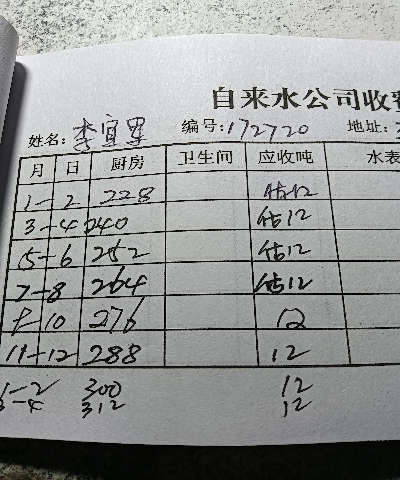 自来水公司收
姓名: 李宜军 编号: 172720 地址:
月 日 厨房 卫生间 应收吨 水表
1-2 228 估12
3-4 240 估12
5-6 252 估12
7-8 264 估12
9-10 276 12
11-12 288 12
1-2 300 12
3-4 312 12